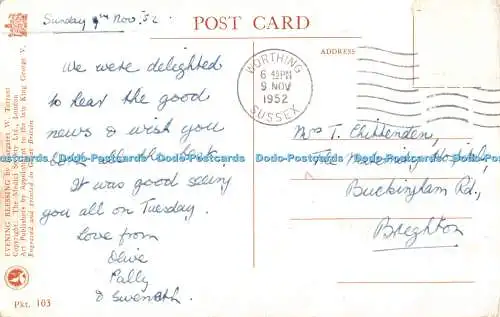 Sunday 9th Nov. 52
POST CARD
We were delighted
to hear the good
news & wish you
all the best.
It was good seeing
you all on Tuesday.
Love from
Olive
Pally
&
ADDRESS
WORTHING
6 45 PM
9 NOV
1952
SUSSEX
Mrs T. Chittenden,
The Nursing Hostel,
Buckingham Rd.,
Brighton
EVENING BLESSING by Margaret W. Tarrant
Copyright. The Medici Society Ltd., London
Art Publishers by Appointment to the late King George V.
Engraved and printed in Great Britain
Pkt. 103
Dodo-Postcards Dodo-Postcards Dodo-Postcards Dodo-Postcards